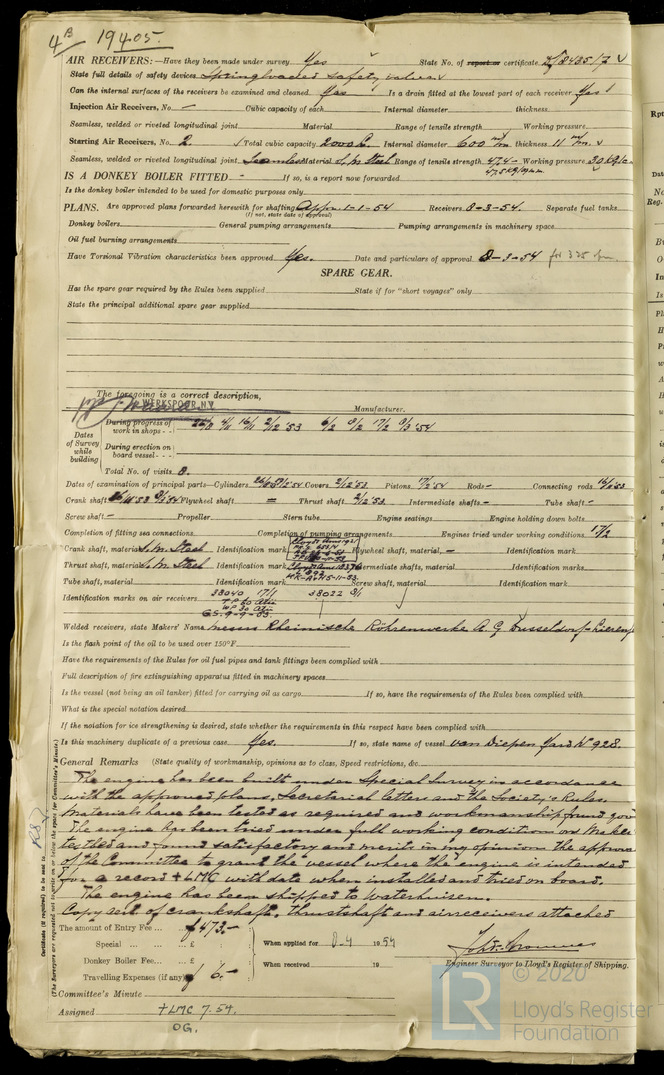 4B 19405.
AIR RECEIVERS:—Have they been made under survey Yes State No. of report or certificate
State full details of safety devices Springloaded safety valves
Can the internal surfaces of the receivers be examined and cleaned Yes Is a drain fitted at the lowest part of each receiver Yes
Injection Air Receivers, No. — Cubic capacity of each Internal diameter thickness
Seamless, welded or riveted longitudinal joint Material Range of tensile strength Working pressure
Starting Air Receivers, No. 2. Total cubic capacity 2000 L. Internal diameter 600 m/m thickness 11 m/m.
Seamless, welded or riveted longitudinal joint Seamless Material S.M. Steel Range of tensile strength 47.4- Working pressure 30 kg/
47.5 kg/mm
IS A DONKEY BOILER FITTED - If so, is a report now forwarded
Is the donkey boiler intended to be used for domestic purposes only
PLANS. Are approved plans forwarded herewith for shafting Appr. 1-1-54 Receivers 8-3-54. Separate fuel tanks
(If not, state date of approval)
Donkey boilers General pumping arrangements Pumping arrangements in machinery space
Oil fuel burning arrangements
Have Torsional Vibration characteristics been approved Yes. Date and particulars of approval 8-3-54 for 325
SPARE GEAR.
Has the spare gear required by the Rules been supplied State if for "short voyages" only
State the principal additional spare gear supplied
The foregoing is a correct description,
WERKSPOOR N.V. Manufacturer.
Dates of Survey while building
During progress of work in shops - -
During erection on board vessel - - -
Total No. of visits 8.
Dates of examination of principal parts—Cylinders Covers 2/12'53. Pistons 17/2'54 Rods - Connecting rods
Crank shaft Flywheel shaft = Thrust shaft 2/12'53. Intermediate shafts - Tube shaft -
Screw shaft - Propeller Stern tube Engine seatings Engine holding down bolts
Completion of fitting sea connections Completion of pumping arrangements Engines tried under working conditions 17/2
Crank shaft, material S.M. Steel Identification mark Flywheel shaft, material - Identification mark
Thrust shaft, material S.M. Steel Identification mark Intermediate shafts, material Identification mark
Tube shaft, material Identification mark Screw shaft, material Identification mark
Identification marks on air receivers 38040 38022
G.S. 9-9-53.
Welded receivers, state Makers' Name Messrs Rheinische Röhrenwerke A.G Dusseldorf-Lierenf
Is the flash point of the oil to be used over 150°F.
Have the requirements of the Rules for oil fuel pipes and tank fittings been complied with
Full description of fire extinguishing apparatus fitted in machinery spaces
Is the vessel (not being an oil tanker) fitted for carrying oil as cargo If so, have the requirements of the Rules been complied with
What is the special notation desired
If the notation for ice strengthening is desired, state whether the requirements in this respect have been complied with
Is this machinery duplicate of a previous case Yes. If so, state name of vessel van Diepen Yard No 928.
General Remarks (State quality of workmanship, opinions as to class, Speed restrictions, &c.
The engine has been built under Special Survey in accordance
with the approved plans, Secretarial letters and the Society's Rules.
Materials have been tested as required and workmanship found goo
The engine has been tried under full working conditions on Makers
testbed and found satisfactory and merits in my opinion the approva
of the Committee to grant the vessel where the engine is intended
for a record +LMC with date when installed and tried on board.
The engine has been shipped to Waterhuizen.
Copy cert. of crankshaft, thrustshaft and airreceivers attached
The amount of Entry Fee ... f 473.-
Special ... ... £
Donkey Boiler Fee... ... £
Travelling Expenses (if any) f 6.-
When applied for 8-4 1954
When received 19
Engineer Surveyor to Lloyd's Register of Shipping.
Committee's Minute
Assigned +LMC 7.54.
OG.
Certificate (if required) to be sent to
(The Surveyors are requested not to write on or below the space for Committee's Minute.)
© 2020
LR Lloyd's Register
Foundation